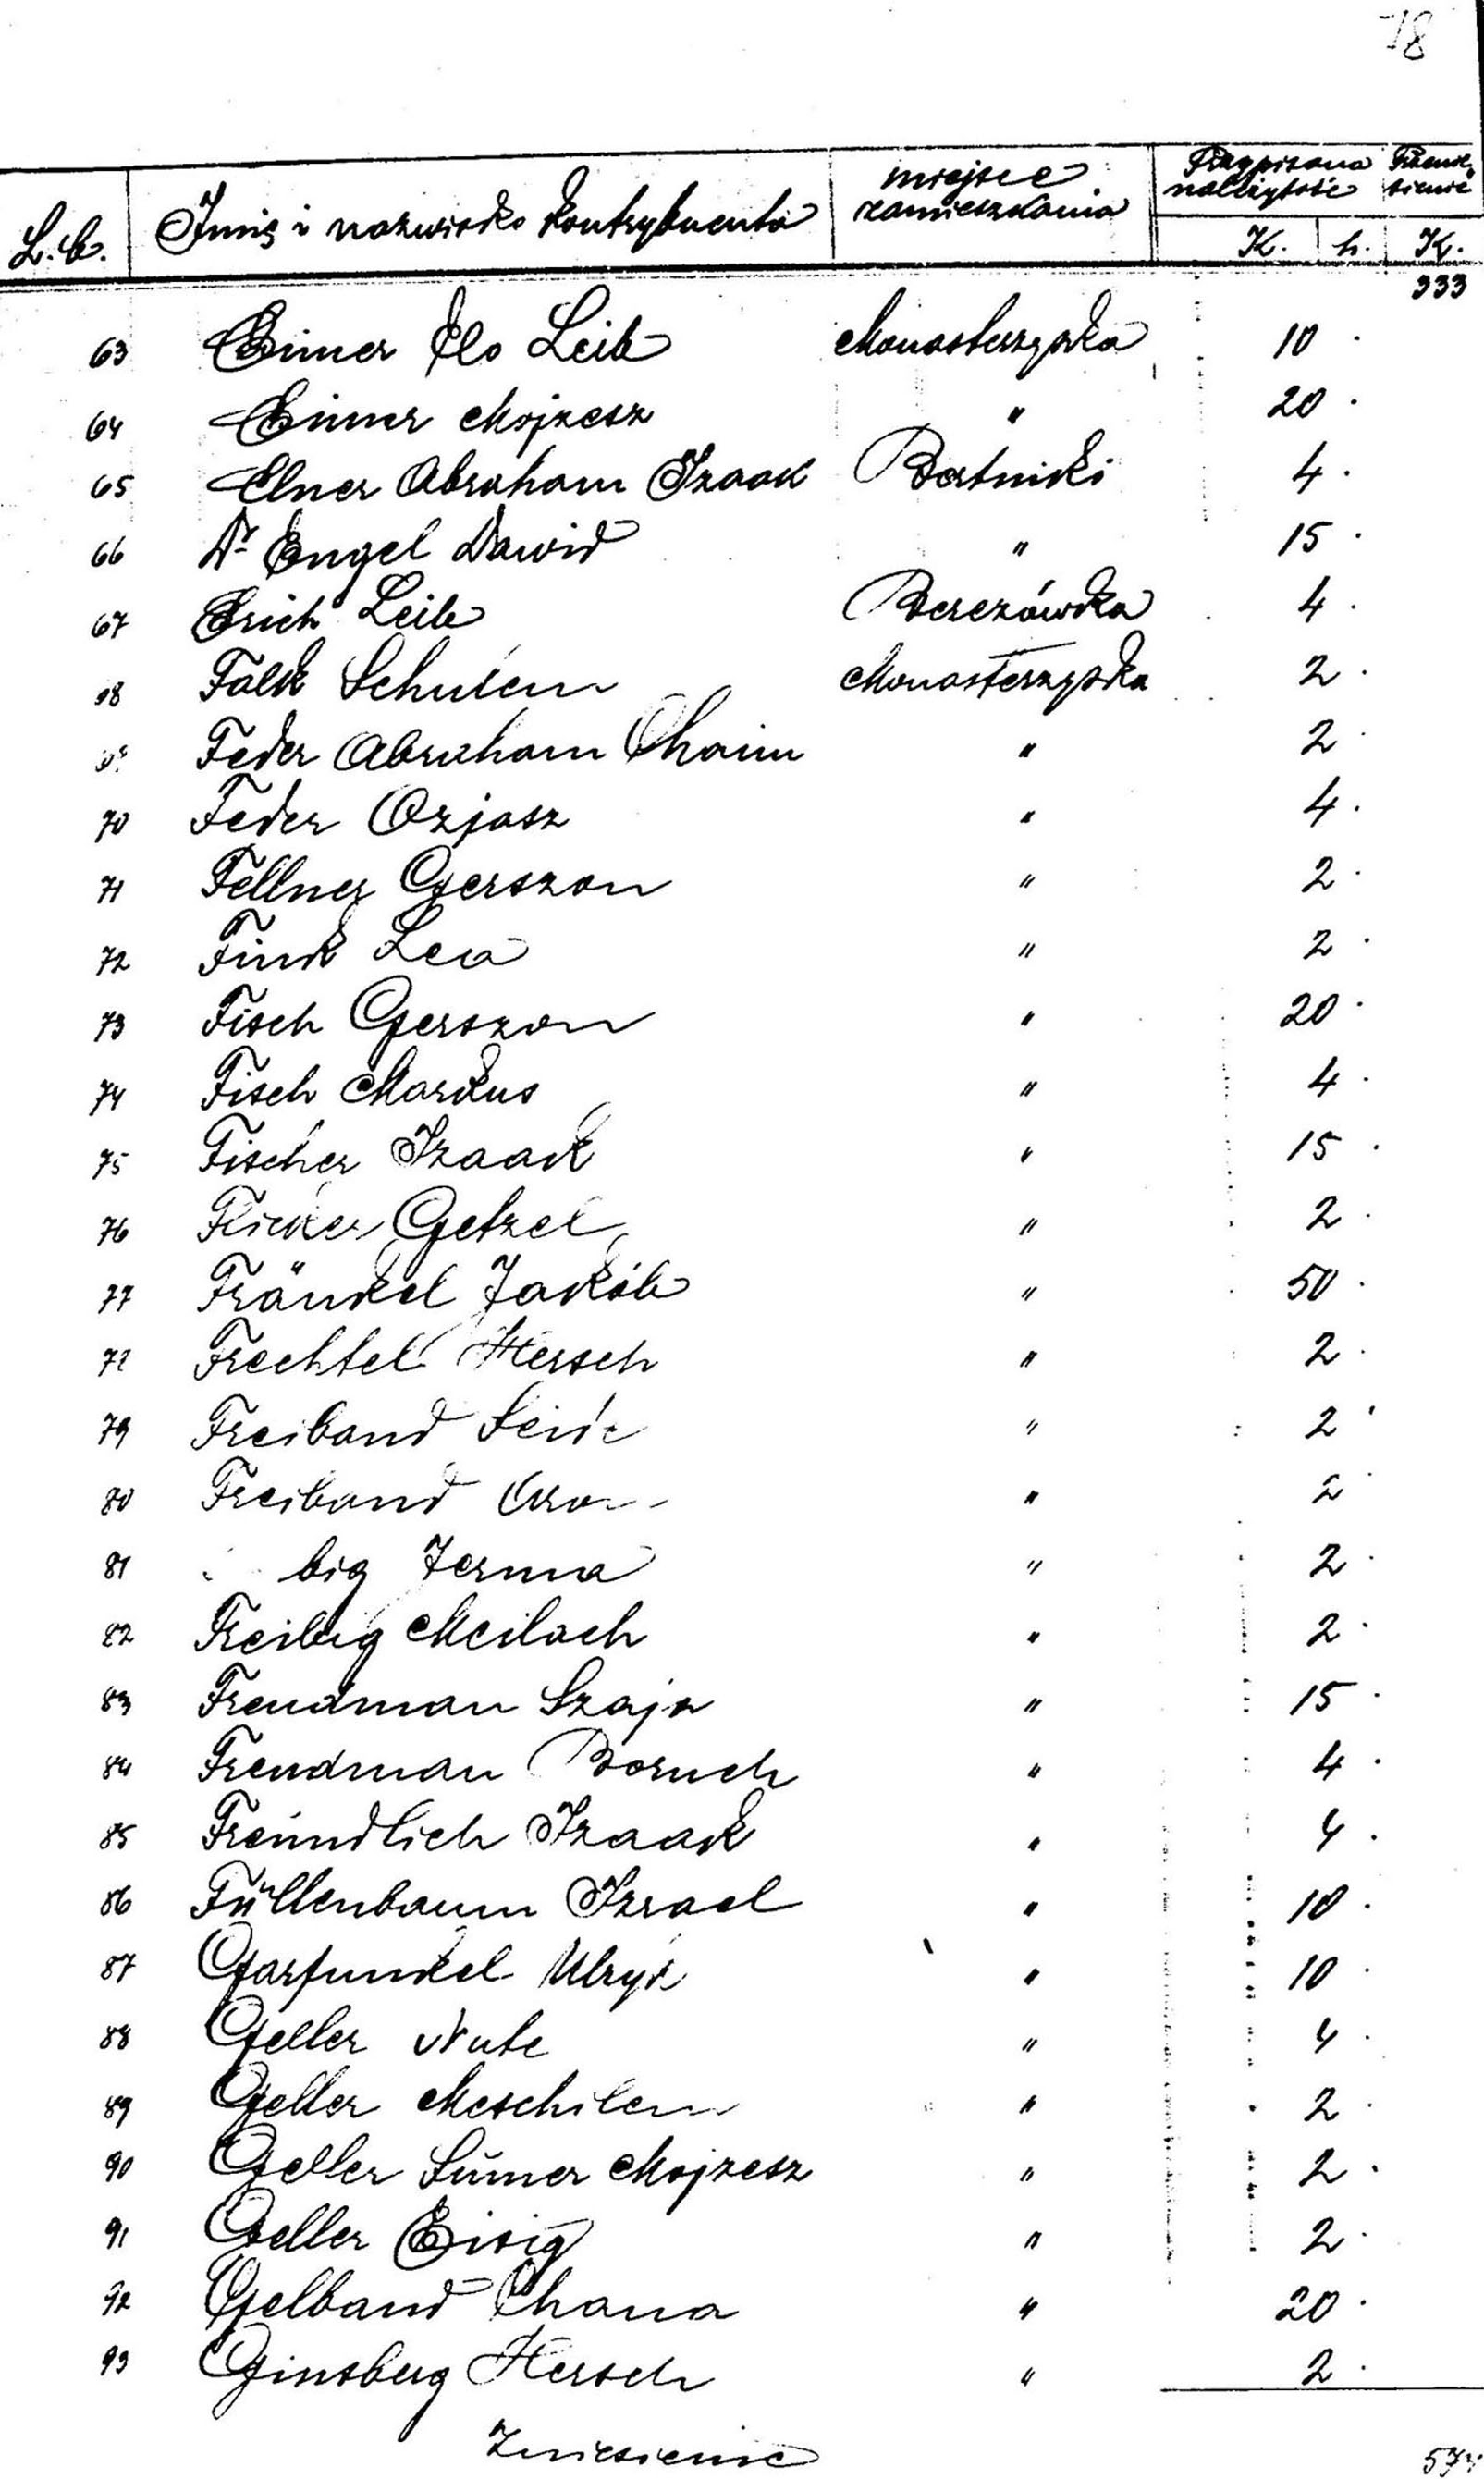 78
L. b. Imię i nazwisko kontrybuenta miejsce zamieszkania Przypisana należytość
K. h. K.
333
63 Eimer Elo Leib Monasterzyska 10
64 Eimer Mojzesz " 20
65 Elner Abraham Izaak Bertniki 4
66 Dr Engel Dawid " 15
67 Erich Leib Berezówka 4
68 Falk Schulem Monasterzyska 2
69 Feder Abraham Chaim " 2
70 Feder Ozjasz " 4
71 Fellner Gerszon " 2
72 Fink Lea " 2
73 Fisch Gerszon " 20
74 Fisch Markus " 4
75 Fischer Izaak " 15
76 Flicker Getzel " 2
77 Fränkel Jakób " 50
78 Frechtel Hersch " 2
79 Freiband " 2
80 Freiband " 2
81 big Jerma " 2
82 Freibig Meilach " 2
83 Freudman Szaja " 15
84 Freudman Boruch " 4
85 Freundlich Izaak " 4
86 Füllenbaum Izrael " 10
87 Garfunkel Ulryk " 10
88 Geller Nute " 4
89 Geller Meschilem " 2
90 Geller Sumer Mojzesz " 2
91 Geller Eisig " 2
92 Gelband Chana " 20
93 Ginsberg Hersch " 2
Zniesienie